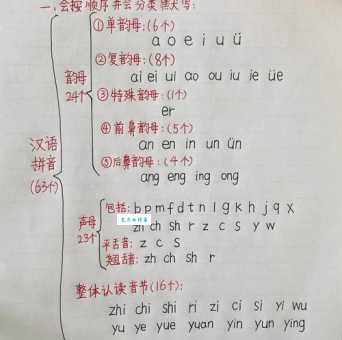 一、会按顺序并会分类默写:
①单韵母:(6个)
a o e i u ü
②复韵母:(8个)
ai ei ui ao ou iu ie üe
韵母
24个
③特殊韵母:(1个)
er
④前鼻韵母:(5个)
an en in un ün
⑤后鼻韵母:(4个)
ang eng ing ong
汉语
拼音
(63个)
声母
23个
包括:b p m f d t n l g k h j q x
zh ch sh r z c s y w
平舌音:z c s
翘舌音:zh ch sh r
整体认读音节(16个):
zhi chi shi ri zi ci si yi wu
yu ye yue yuan yin yun ying